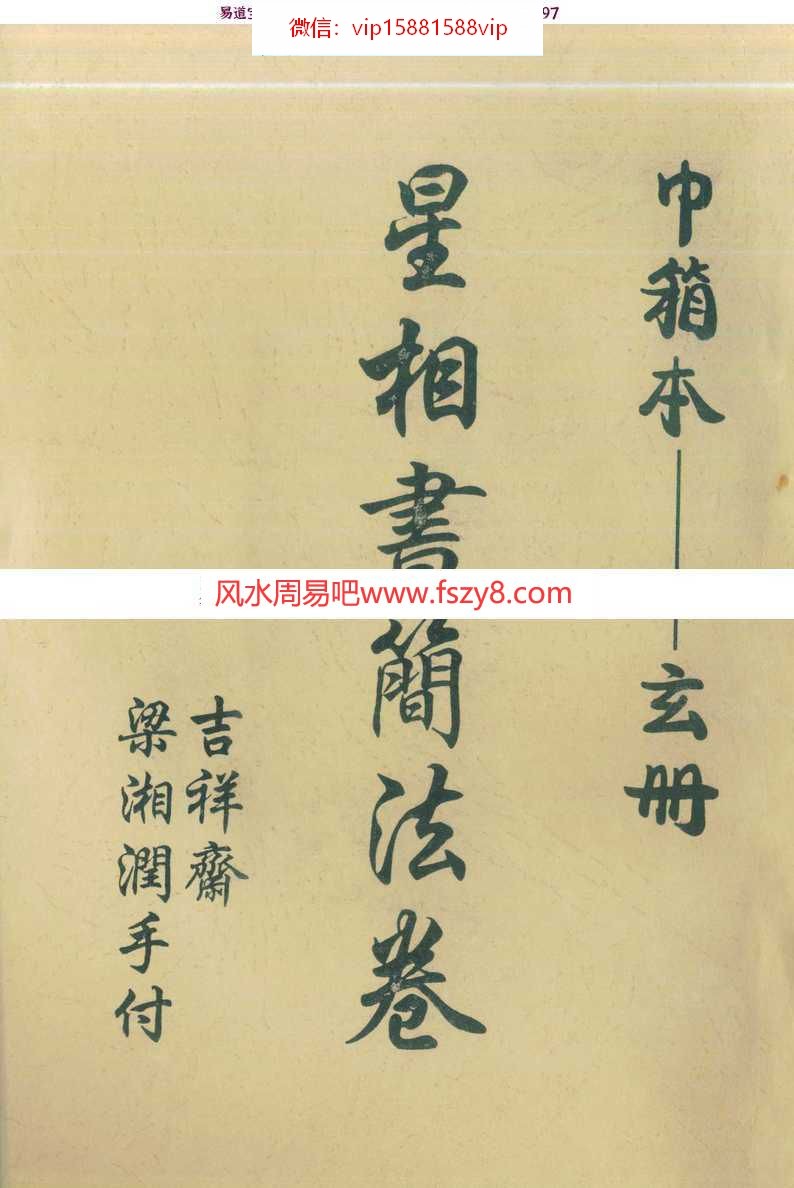 易道
97
微信：vip15881588vip
巾箱本——玄册
星相書簡法卷
风水周易吧www.fszy8.com
吉祥齋
梁湘潤手付